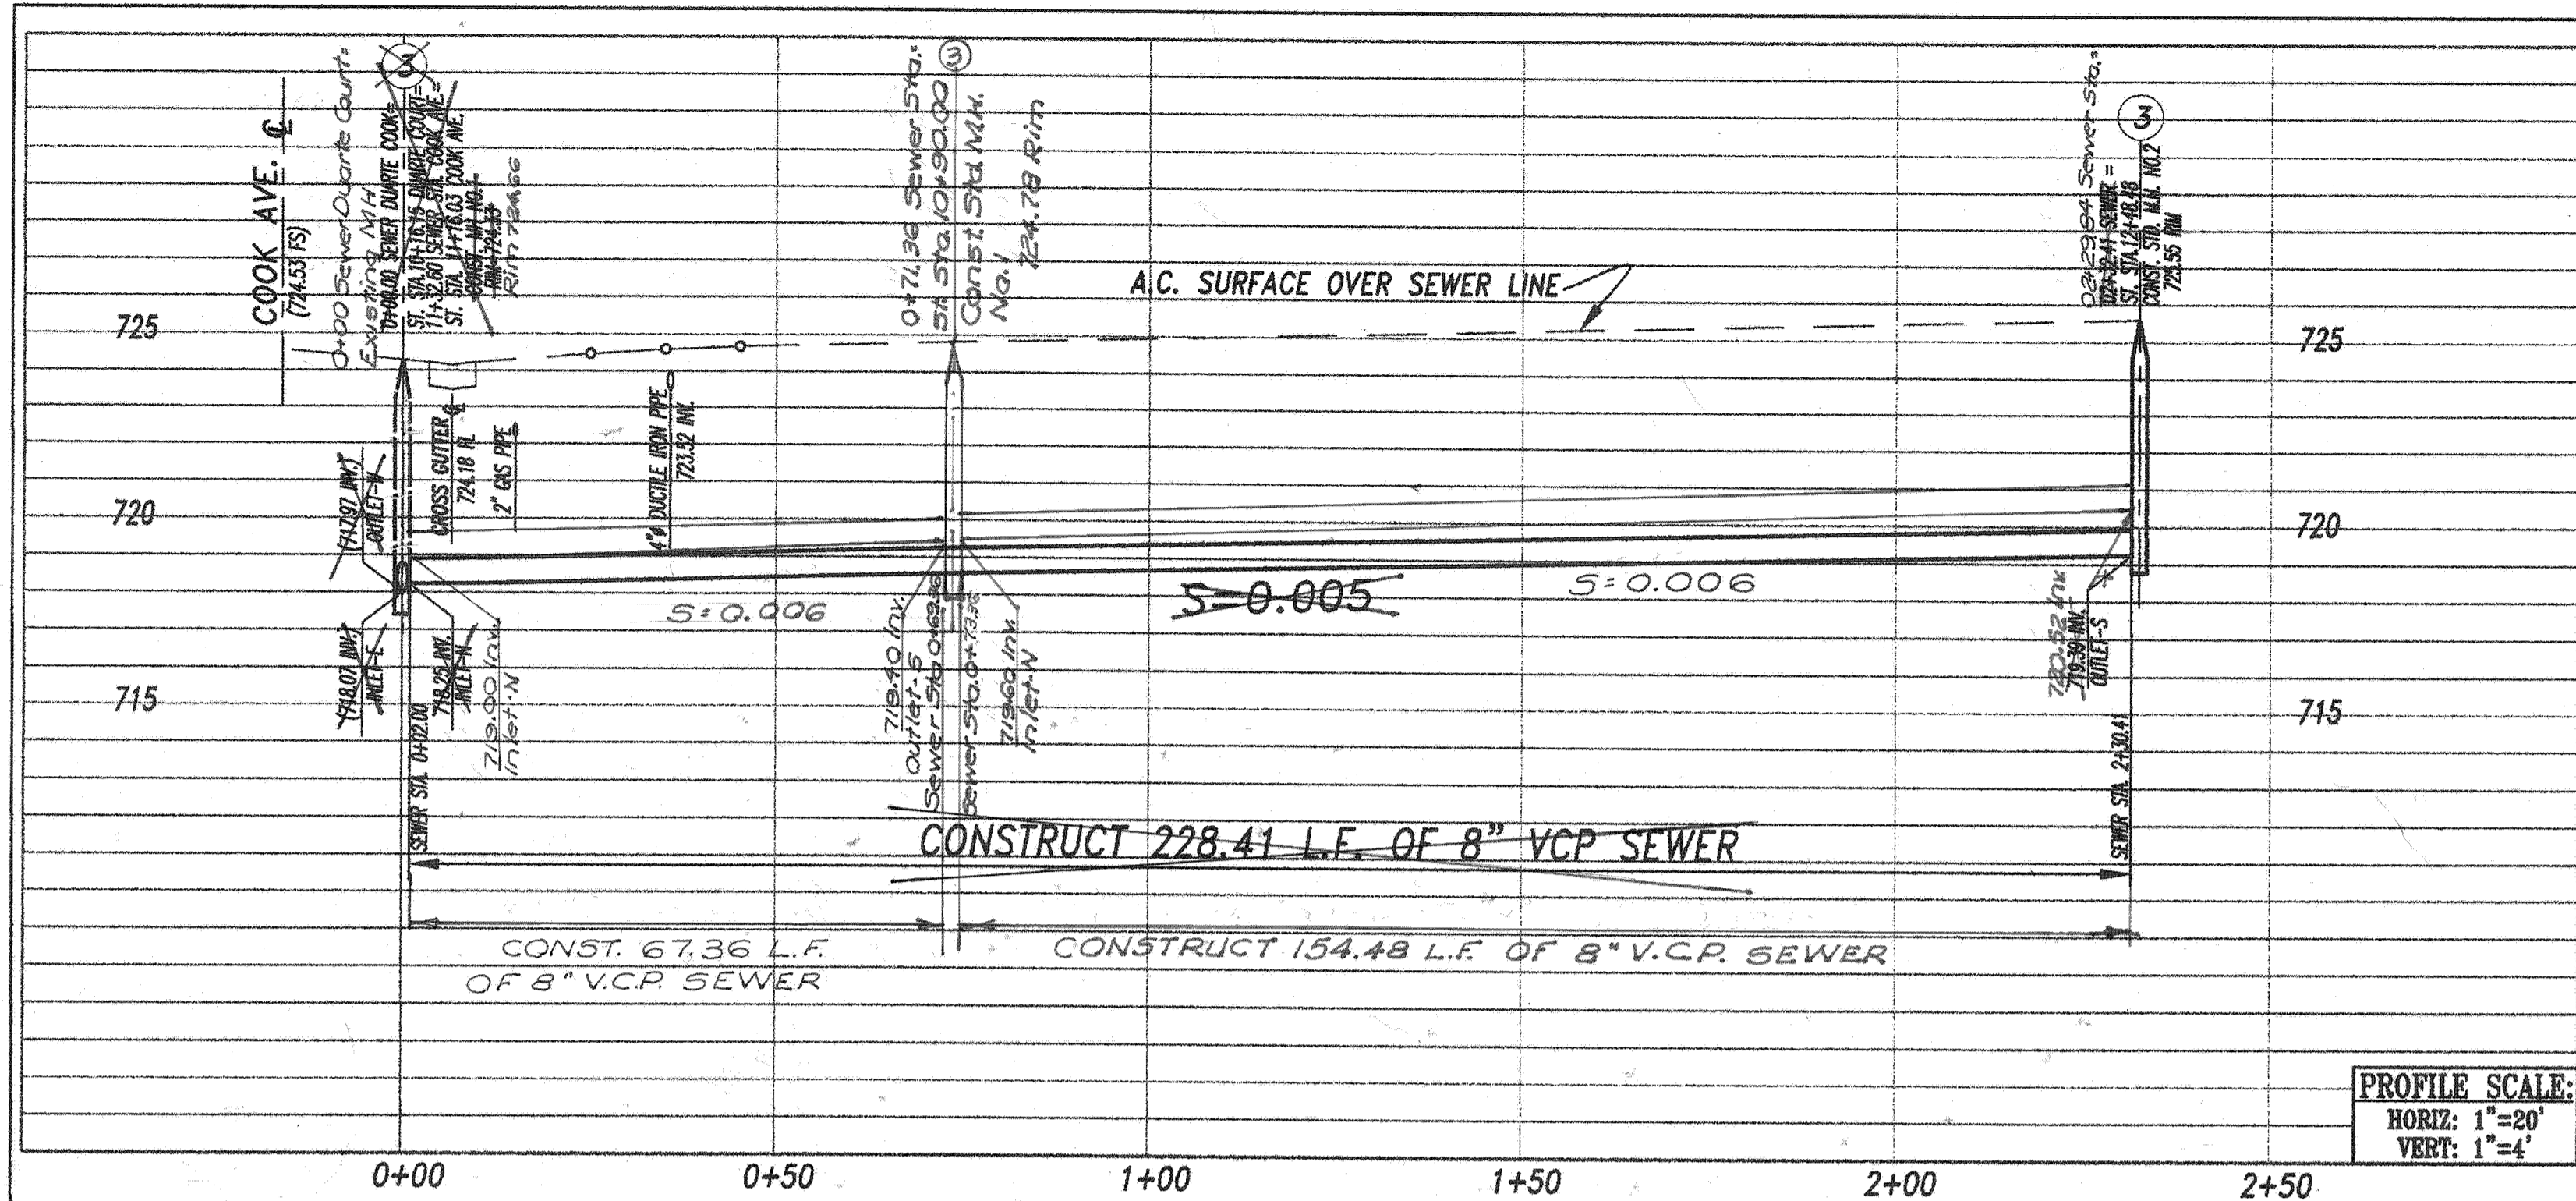 COOK AVE. ℄
(724.53 FS)
0+00 Sewer Duarte Court=
Existing MH
3
0+00.00 SEWER DUARTE COOK=
ST. STA.10+16.15 DUARTE COURT=
11+32.60 SEWER STA. COOK AVE.=
ST. STA. 11+16.03 COOK AVE.
CONST. MH NO.1
RIM=724.33
Rim 724.66
3
0+71.36 Sewer Sta.=
St. Sta. 10+90.00
Const. Std. M.H.
No. 1
724.78 Rim
A.C. SURFACE OVER SEWER LINE
3
02+29.84 Sewer Sta.=
02+32.41 SEWER =
ST. STA.12+48.48
CONST. STD. M.H. NO.2
725.55 RIM
725
725
CROSS GUTTER ℄
724.18 FL
2" GAS PIPE
4"ø DUCTILE IRON PIPE
723.52 INV.
(717.97 INV.)
OUTLET-W
720
720
S=0.006
S=0.005
S=0.006
(718.07 INV.)
INLET-E
718.25 INV.
INLET-N
719.00 Inv.
Inlet-N
719.40 Inv.
Outlet-S
Sewer Sta
Sewer Sta.0+73.36
719.60 Inv.
Inlet-N
720.52 Inv
719.39 INV.
OUTLET-S
715
715
SEWER STA. 0+02.00
SEWER STA. 2+30.41
CONSTRUCT 228.41 L.F. OF 8" VCP SEWER
CONST. 67.36 L.F.
OF 8" V.C.P. SEWER
CONSTRUCT 154.48 L.F. OF 8" V.C.P. SEWER
PROFILE SCALE:
HORIZ: 1"=20'
VERT: 1"=4'
0+00
0+50
1+00
1+50
2+00
2+50